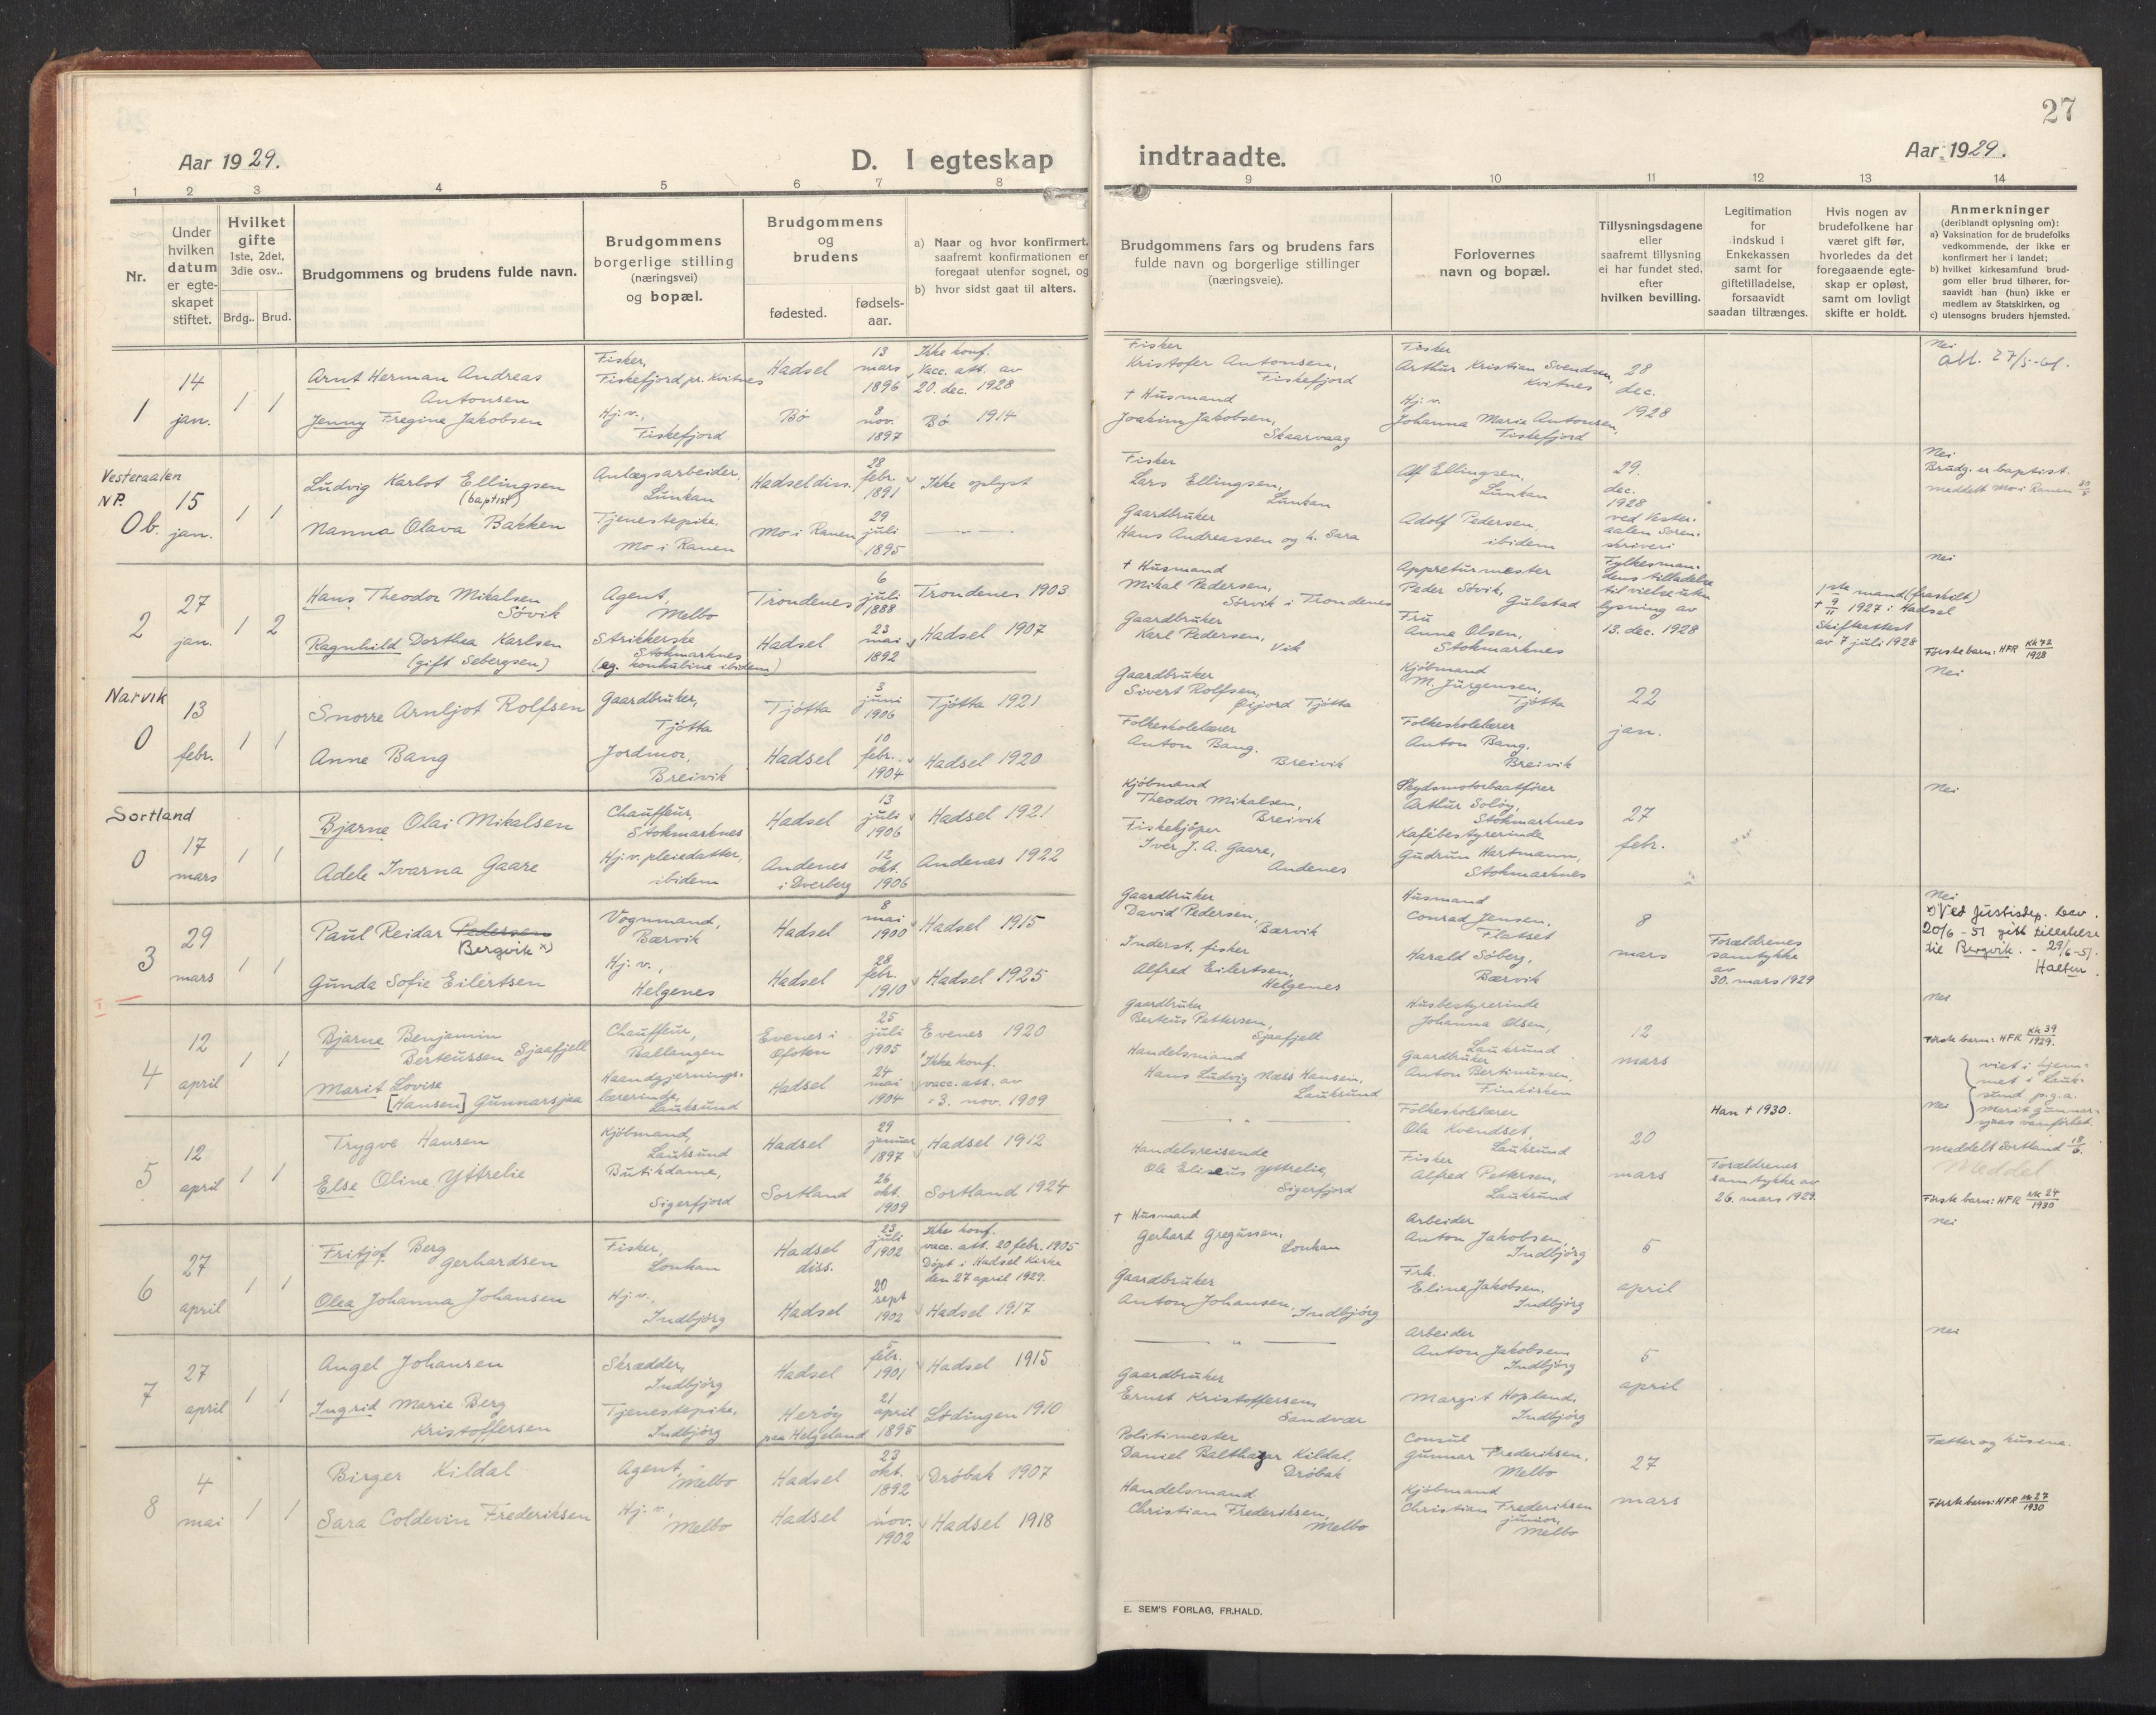 27
Aar 1929.
D. I egteskap
indtraadte.
Aar 1929.
1 2 3 4 5 6 7 8 9 10 11 12 13 14
Nr.
Under hvilken datum er egteskapet stiftet.
Hvilket gifte
1ste, 2det, 3die osv..
Brdg.. Brud.
Brudgommens og brudens fulde navn.
Brudgommens borgerlige stilling (næringsvei) og bopæl.
Brudgommens og brudens
fødested.
fødsels-aar.
a) Naar og hvor konfirmert, saafremt konfirmationen er foregaat utenfor sognet, og
b) hvor sidst gaat til alters.
Brudgommens fars og brudens fars fulde navn og borgerlige stillinger (næringsveie).
Forlovernes navn og bopæl.
Tillysningsdagene eller saafremt tillysning ei har fundet sted. efter hvilken bevilling.
Legitimation for indskud i Enkekassen samt for giftetilladelse, forsaavidt saadan tiltrænges.
Hvis nogen av brudefolkene har været gift før, hvorledes da det foregaaende egteskap er opløst, samt om lovligt skifte er holdt.
Anmerkninger
(deriblandt oplysning om):
a) Vaksination for de brudefolks vedkommende, der ikke er konfirmert her i landet;
b) hvilket kirkesamfund brudgom eller brud tilhører, forsaavidt han (hun) ikke er medlem av Statskirken, og
c) utensogns bruders hjemsted.
1
14 jan.
1 1
Arnt Herman Andreas Antonsen
Jenny Fregine Jakobsen
Fisker, Fiskefjord pr. Kvitnes
Hj. v., Fiskefjord
Hadsel
Bø
13 mars 1896
8 nov. 1897
Ikke konf. Vacc. att. av 20. dec. 1928
Bø 1914
Fisker Kristofer Antonsen, Fiskefjord
† Husmand Joakim Jakobsen, Skaarvaag
Fisker Arthur Kristian Svendsen, Kvitnes
Hj. v. Johanna Marie Antonsen, Fiskefjord
28 dec. 1928
Nei
att. 27/5-61.
Vesteraalen NP.
0b.
15 jan.
1 1
Ludvig Karlot Ellingsen (baptist)
Nanna Olava Bakken
Anlægsarbeider, Lunkan
Tjenestepike, Mo i Ranen
Hadsel diss.
Mo i Ranen
28 febr. 1891
29 juli 1895
Ikke oplyst
— " —
Fisker Lars Ellingsen, Lunkan
Gaardbruker Hans Andreassen og h. Sara
Alf Ellingsen, Lunkan
Adolf Pedersen, ibidem
29. dec. 1928 ved Vesteraalen Sorenskriveri
Nei
Brudg. er baptist.
meddelt Mo i Ranen
2
27 jan.
1 2
Hans Theodor Mikalsen Sövik
Ragnhild Dorthea Karlsen (gift Sebergsen)
Agent, Melbo
Strikkerske Stokmarknes (eg. konkubine ibidem)
Trondenes
Hadsel
6 juli 1888
23 mai 1892
Trondenes 1903
Hadsel 1907
† Husmand Mikal Pedersen, Sörvik i Trondenes
Gaardbruker Karl Pedersen, Vik
Appreturmester Peder Sövik, Gulstad
Fru Anne Olsen, Stokmarknes
Fylkesmandens tilladelse til vielse uten lysning av 13. dec. 1928
1ste mand (fraskilt) † 9/11 1927 i Hadsel
Skifteattest av 7 juli 1928
Nei
Første barn: HFR Kk 72/1928
Narvik
0
13 febr.
1 1
Snorre Arnljot Rolfsen
Anne Bang
Gaardbruker, Tjötta
Jordmor, Breivik
Tjötta
Hadsel
3 juni 1906
10 febr. 1904
Tjötta 1921
Hadsel 1920
Gaardbruker Sivert Rolfsen, Øijord Tjötta
Folkeskolelærer Anton Bang. Breivik
Kjöbmand M. Jürgensen, Tjötta
Folkeskolelærer Anton Bang. Breivik
22 jan.
Nei
Sortland
0
17 mars
1 1
Bjarne Olai Mikalsen
Adele Ivarna Gaare
Chauffeur, Stokmarknes
Hj. v. pleiedatter, ibidem
Hadsel
Andenes i Dverberg
13 juli 1906
12 okt. 1906
Hadsel 1921
Andenes 1922
Kjöbmand Theodor Mikalsen, Breivik
Fiskekjöper Iver J. A. Gaare, Andenes
Skydsmotorbaatförer Arthur Solöy, Stokmarknes
Kafébestyrerinde Gudrun Hartmann, Stokmarknes
27 febr.
Nei
3
29 mars
1 1
Paul Reidar Pedersen Bergvik x)
Gunda Sofie Eilertsen
Vognmand, Bærvik
Hj. v., Helgenes
Hadsel
Hadsel
8 mai 1900
28 febr. 1910
Hadsel 1915
Hadsel 1925
Gaardbruker David Pedersen, Bærvik
Inderst, fisker Alfred Eilertsen, Helgenes
Husmand Conrad Jensen, Flatset
Harald Söberg, Bærvik
8 mars
Forældrenes samtykke av 30. mars 1929
Nei
x) Ved Justisdep. bev. 20/6-51 gitt tillatelse til Bergvik. - 29/6-51.
4
12 april
1 1
Bjarne Benjamin Berteussen Sjaafjell
Marit Lovise [Hansen] Gunnarsjaa
Chauffeur, Ballangen
Haandgjerningslærerinde, Lauksund
Evenes i Ofoten
Hadsel
25 juli 1905
24 mai 1904
Evenes 1920
Ikke konf. vacc. att. av 3. nov. 1909
Gaardbruker Berteus Pettersen, Sjaafjell
Handelsmand Hans Ludvig Næss Hansen, Lauksund
Husbestyrerinde Johanna Olsen, Lauksund
Gaardbruker Anton Bertinussen, Finkirken
12 mars
Nei
Første barn: HFR Kk 39/1929.
viet i hjemmet i Lauksund p.g.a. Marit Gunnarsjaas vanförhet.
5
12 april
1 1
Trygve Hansen
Else Oline Yttrelie
Kjöbmand, Lauksund
Butikdame, Sigerfjord
Hadsel
Sortland
29 januar 1897
26 okt. 1909
Hadsel 1912
Sortland 1924
— " —
Handelsreisende Ole Eliseus Yttrelie, Sigerfjord
Folkeskolelærer Ola Kvendset, Lauksund
Fisker Alfred Pettersen, Lauksund
20 mars
Han † 1930.
Forældrenes samtykke av 26. mars 1929.
Nei
meddelt Sortland 18/6.
Meddel
Første barn: HFR Kk 24/1930
6
27 april
1 1
Fritjof Berg Gerhardsen
Olea Johanna Johansen
Fisker, Lonkan
Hj. v., Indbjörg
Hadsel diss.
Hadsel
23 juli 1902
20 sept 1902
Ikke konf. vacc. att. 20 febr. 1905
Döpt i Hadsel Kirke den 27 april 1929.
Hadsel 1917
† Husmand Gerhard Gregussen, Lonkan
Gaardbruker Anton Johansen, Indbjörg
Arbeider Anton Jakobsen, Indbjörg
Frk. Eline Jakobsen, Indbjörg
5 april
Nei
7
27 april
1 1
Angel Johansen
Ingrid Marie Berg Kristoffersen
Skrædder, Indbjörg
Tjenestepike, Indbjörg
Hadsel
Heröy paa Helgeland
5 febr. 1901
21 april 1895
Hadsel 1915
Lödingen 1910
— " —
Gaardbruker Ernst Kristoffersen, Sandvær
Arbeider Anton Jakobsen, Indbjörg
Margit Hopland, Indbjörg
5 april
Nei
8
4 mai
1 1
Birger Kildal
Sara Coldevin Frederiksen
Agent, Melbo
Hj. v., Melbo
Hadsel
Hadsel
23 okt. 1892
1 nov. 1902
Dröbak 1907
Hadsel 1918
Politimester Daniel Balthazar Kildal, Dröbak
Handelsmand Christian Frederiksen, Melbo
Consul Gunnar Frederiksen, Melbo
Kjöbmand Christian Frederiksen junior, Melbo
27 mars
Fætter og kusene.
Første barn: HFR Kk 27/1930
E. SEM'S FORLAG, FR.HALD.